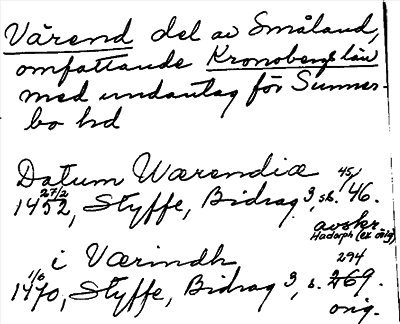 Värend del av Småland,
omfattande Kronobergs län
med undantag för Sunner-
bo hd
Datum Wærendiæ 45/
1452 27/2, Styffe, Bidrag 3, s. 46.
avskr.
Hadorph (ex orig)
i Værindh 294
1470 1/6, Styffe, Bidrag 3, s. 269.
orig.